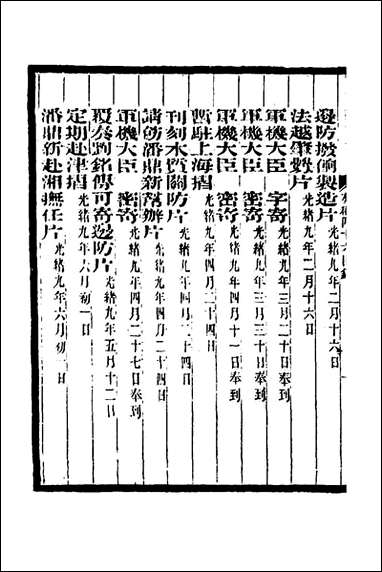 邊防撥餉製造片 光緒九年二月十六日
法越肇釁片 光緒九年二月十六日
軍機大臣 字寄 光緒九年三月二十日奉到
軍機大臣 密寄 光緒九年三月三十日奉到
軍機大臣 密寄 光緒九年四月十一日奉到
暫駐上海摺 光緒九年四月二十四日
刊刻木質關防片 光緒九年四月二十四日
請飭潘鼎新幫辦片 光緒九年四月二十四日
軍機大臣 密寄 光緒九年四月二十七日奉到
覆奏劉銘傳可寄邊防片 光緒九年五月十二日
定期赴津摺 光緒九年六月初一日
潘鼎新赴湘撫任片 光緒九年六月初 日